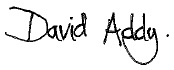 David Addy.